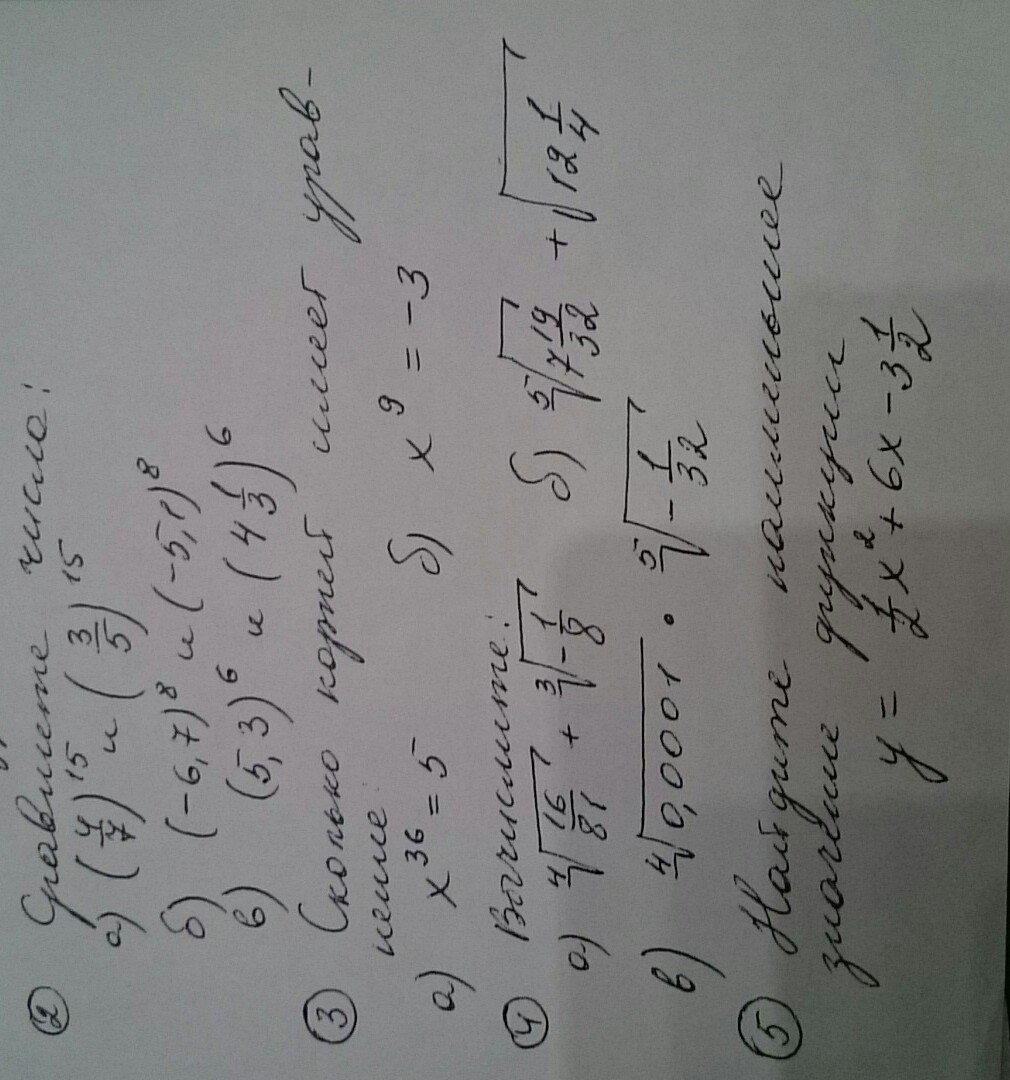 ② Сравните числа:
а) (4/7)^15 и (3/5)^15
б) (-6,7)^8 и (-5,1)^8
в) (5,3)^6 и (4 1/3)^6
③ Сколько корней имеет урав-
нение:
а) x^36 = 5 б) x^9 = -3
④ Вычислите:
а) ⁴√(16/81) + ³√(-1/8) б) ⁵√(7 19/32) + √(12 1/4)
в) ⁴√0,0001 · ⁵√(-1/32)
⑤ Найдите наименьшее
значение функции
y = 1/2 x² + 6x - 3 1/2